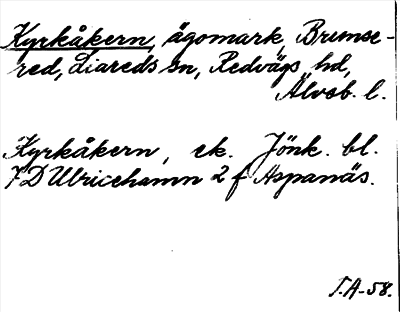 Kyrkåkern, ägomark, Brunse-
red, Liareds sn, Redvägs hd,
Älvsb. l.
Kyrkåkern, ek. Jönk. bl.
7D Ulricehamn 2 f Aspanäs.
T.A-58.